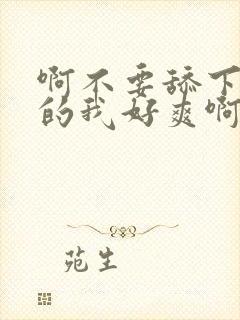 啊不要舔下
的我好爽啊
苑生